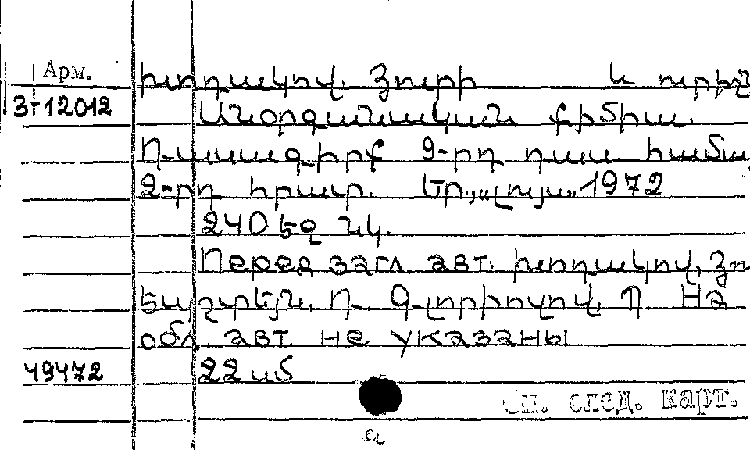 Арм.
Խոդակով. Յուրի և ուրիշ
3-12012
Անօրգանական քիմիա.
Դասագիրք 9-րդ դաս. համա
2-րդ հրատ. Եր., „Լույս„ 1972
240 եջ նկ.
Перед загл. авт. Խոդակով, Յու
Եպշտեյն, Դ. Գլորիոզով, Պ На
обл. авт не указаны
49472 22 սմ
См. след. карт.